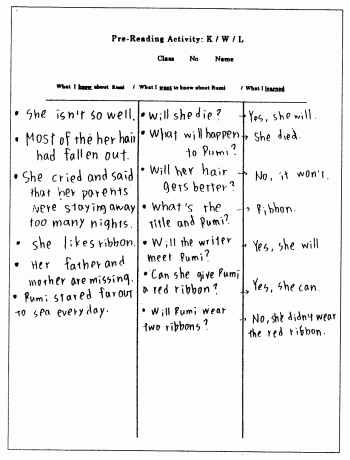 Pre-Reading Activity: K / W / L
Class No Name
What I know about Rumi / What I want to know about Rumi / What I learned
• She isn't so well.
• Most of the her hair
had fallen out.
• She cried and said
that her parents
were staying away
too many nights.
• she likes ribbon.
• Her father and
mother are missing.
• Rumi stared far out
to sea everyday.
• Will she die?
• What will happen
to Rumi?
• Will her hair
gets better?
• What's the
title and Rumi?
• Will the writer
meet Rumi?
• Can she give Rumi
a red ribbon?
• Will Rumi wear
two ribbons?
→ Yes, she will.
→ She died.
→ No, it won't.
→ Ribbon.
→ Yes, she will
→ Yes, she can.
→ No, she didn't wear
the red ribbon.